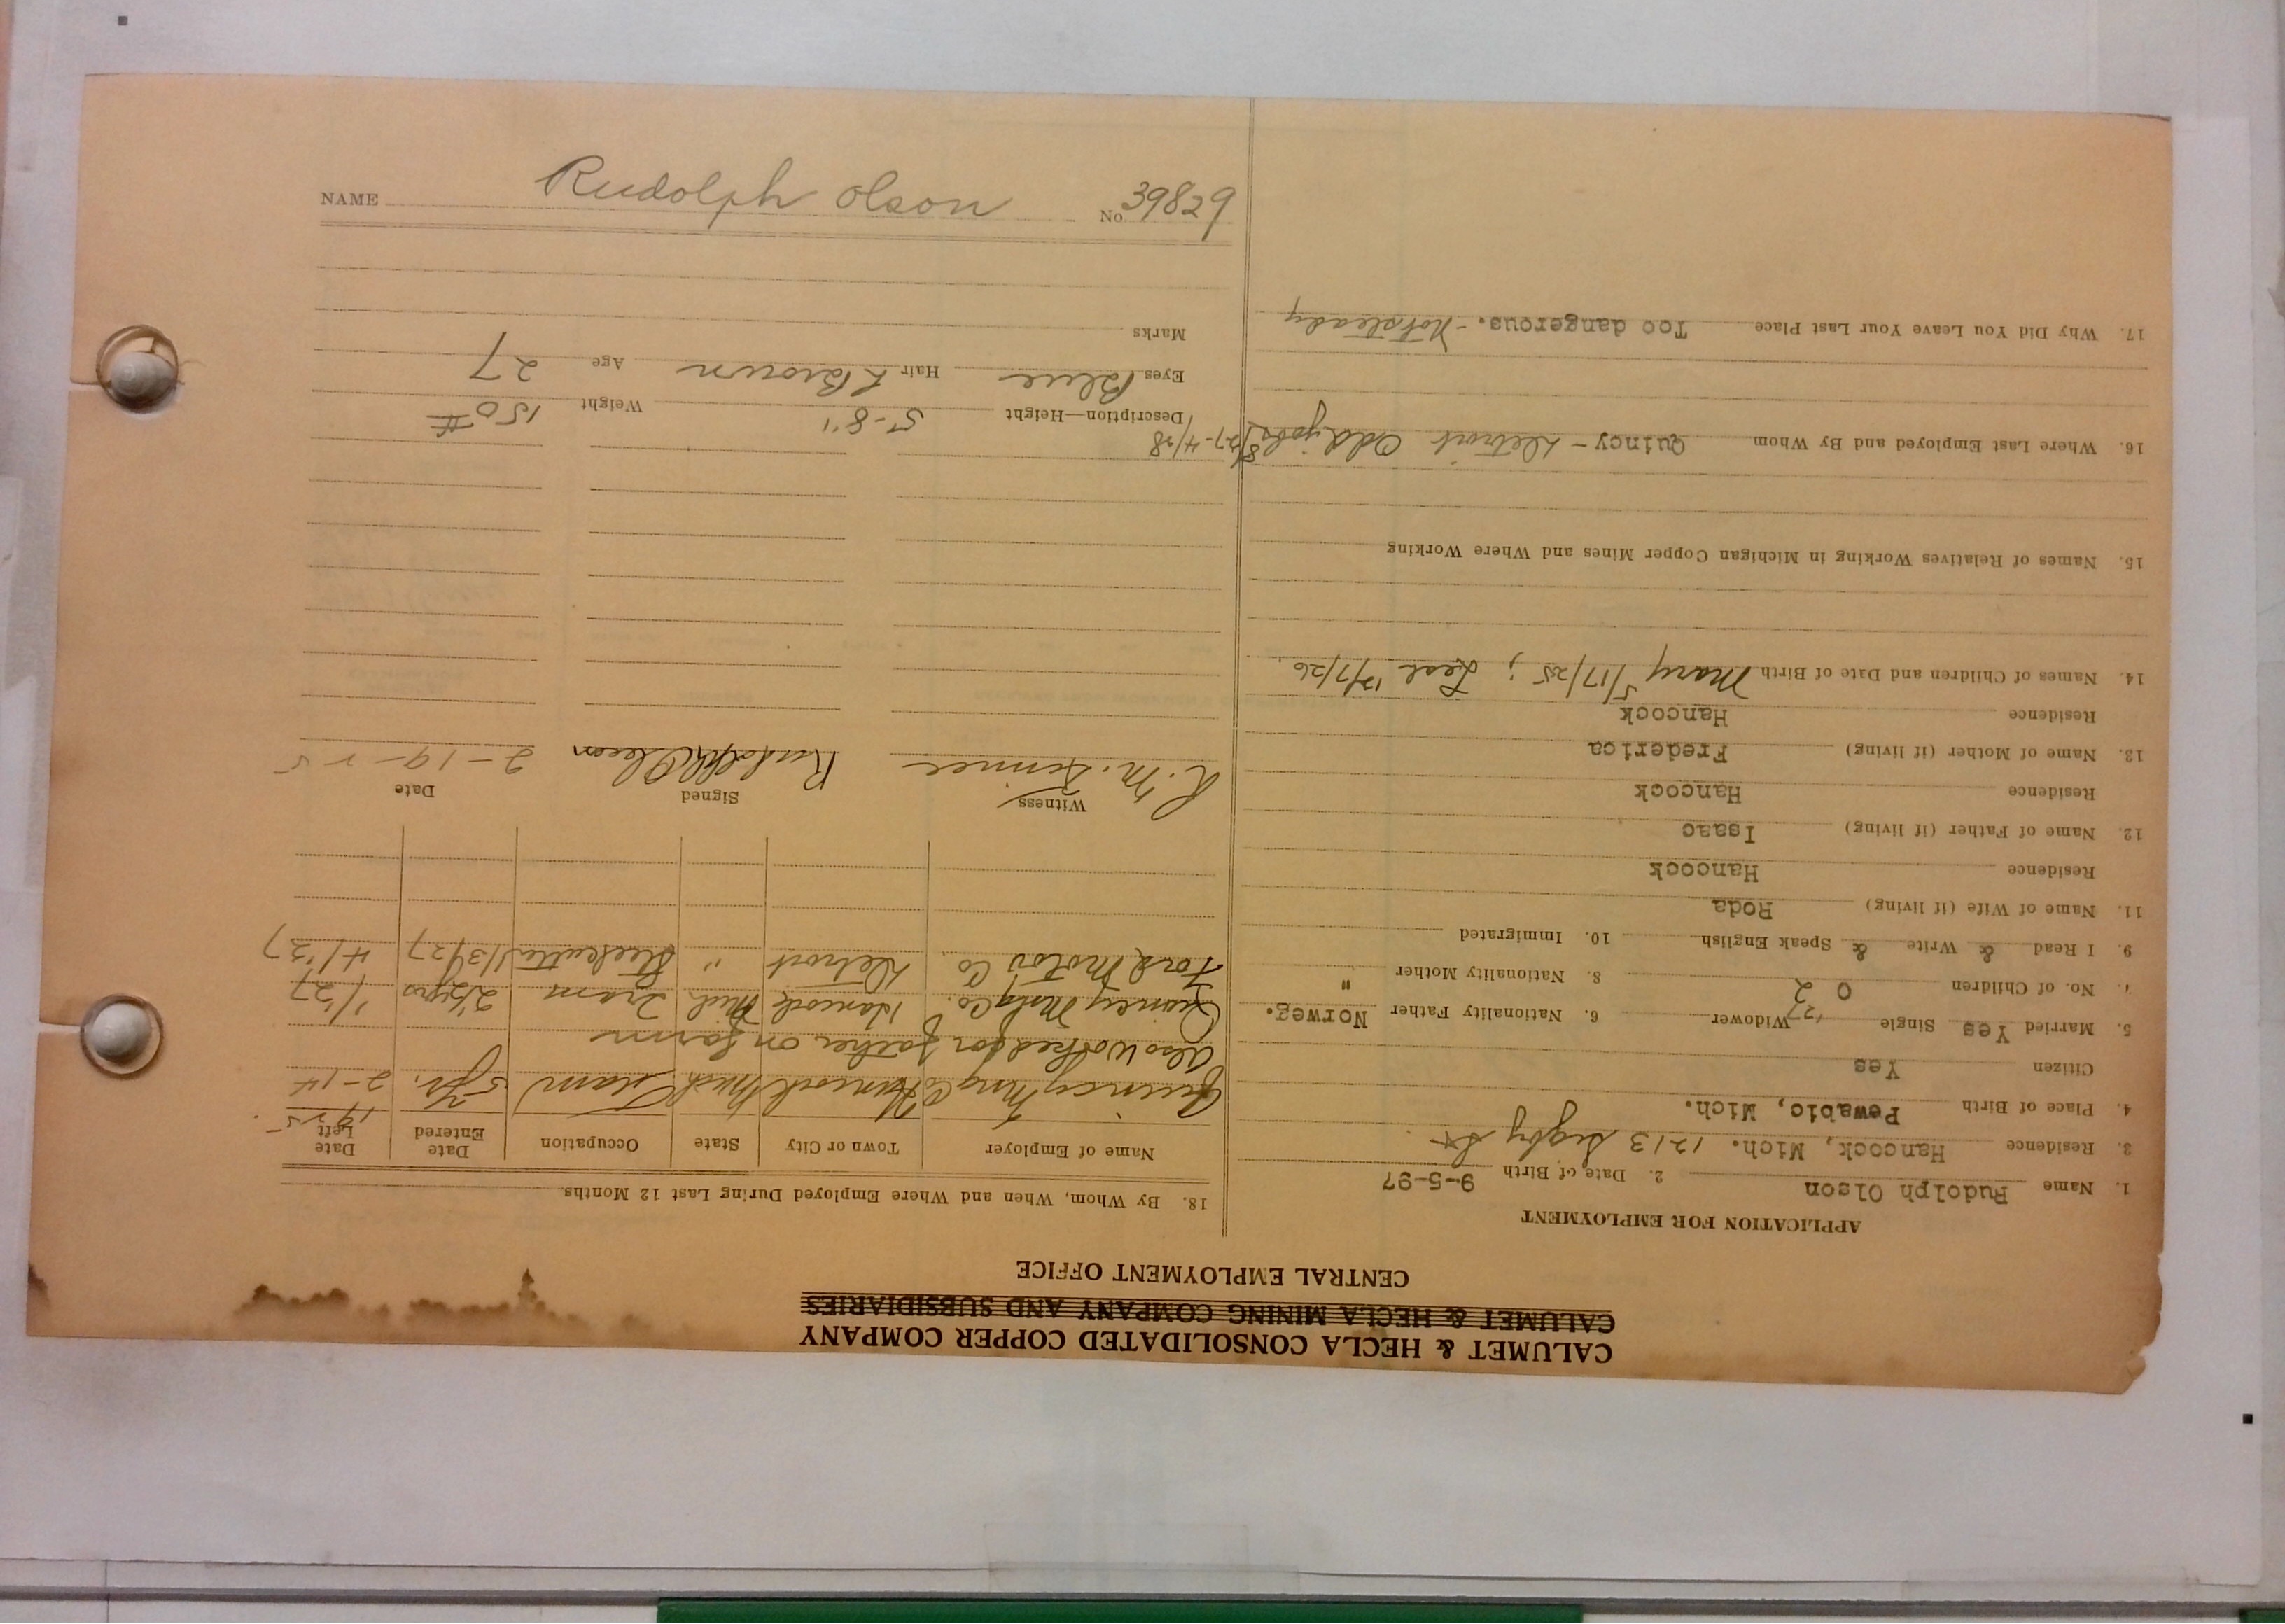 CALUMET & HECLA CONSOLIDATED COPPER COMPANY
CALUMET & HECLA MINING COMPANY AND SUBSIDIARIES
CENTRAL EMPLOYMENT OFFICE
APPLICATION FOR EMPLOYMENT
1. Name Rudolph Olson 2. Date of Birth 9-5-97
3. Residence Hancock, Mich. 1213 St
4. Place of Birth Pewabic, Mich.
Citizen Yes
5. Married Yes Single Widower '27 6. Nationality Father Norweg.
7. No. of Children 0 2 8. Nationality Mother "
9. I Read & Write & Speak English 10. Immigrated
11. Name of Wife (if living) Roda
Residence Hancock
12. Name of Father (if living) Isaac
Residence Hancock
13. Name of Mother (if living) Frederica
Residence Hancock
14. Names of Children and Date of Birth Mary 5/17/25; 12/7/26.
15. Names of Relatives Working in Michigan Copper Mines and Where Working
16. Where Last Employed and By Whom Quincy - Detroit Odd jobs 8/27-4/28
17. Why Did You Leave Your Last Place Too dangerous. - Not steady
18. By Whom, When and Where Employed During Last 12 Months.
Name of Employer Town or City State Occupation Date Entered Date Left
1925
Quincy Mng Co Hancock Mich Tram 5 yr. 2-14
Also worked for father on farm
Quincy Mng Co. Hancock Mich Tram 2 1/2 yrs 1/'27
Ford Motor Co Detroit " 1/3/27 4/'27
Witness Signed Date
Rudolph Olson 2-19-25
Description—Height 5-8" Weight 150#
Eyes Blue Hair L Brown Age 27
Marks
NAME Rudolph Olson No. 39829